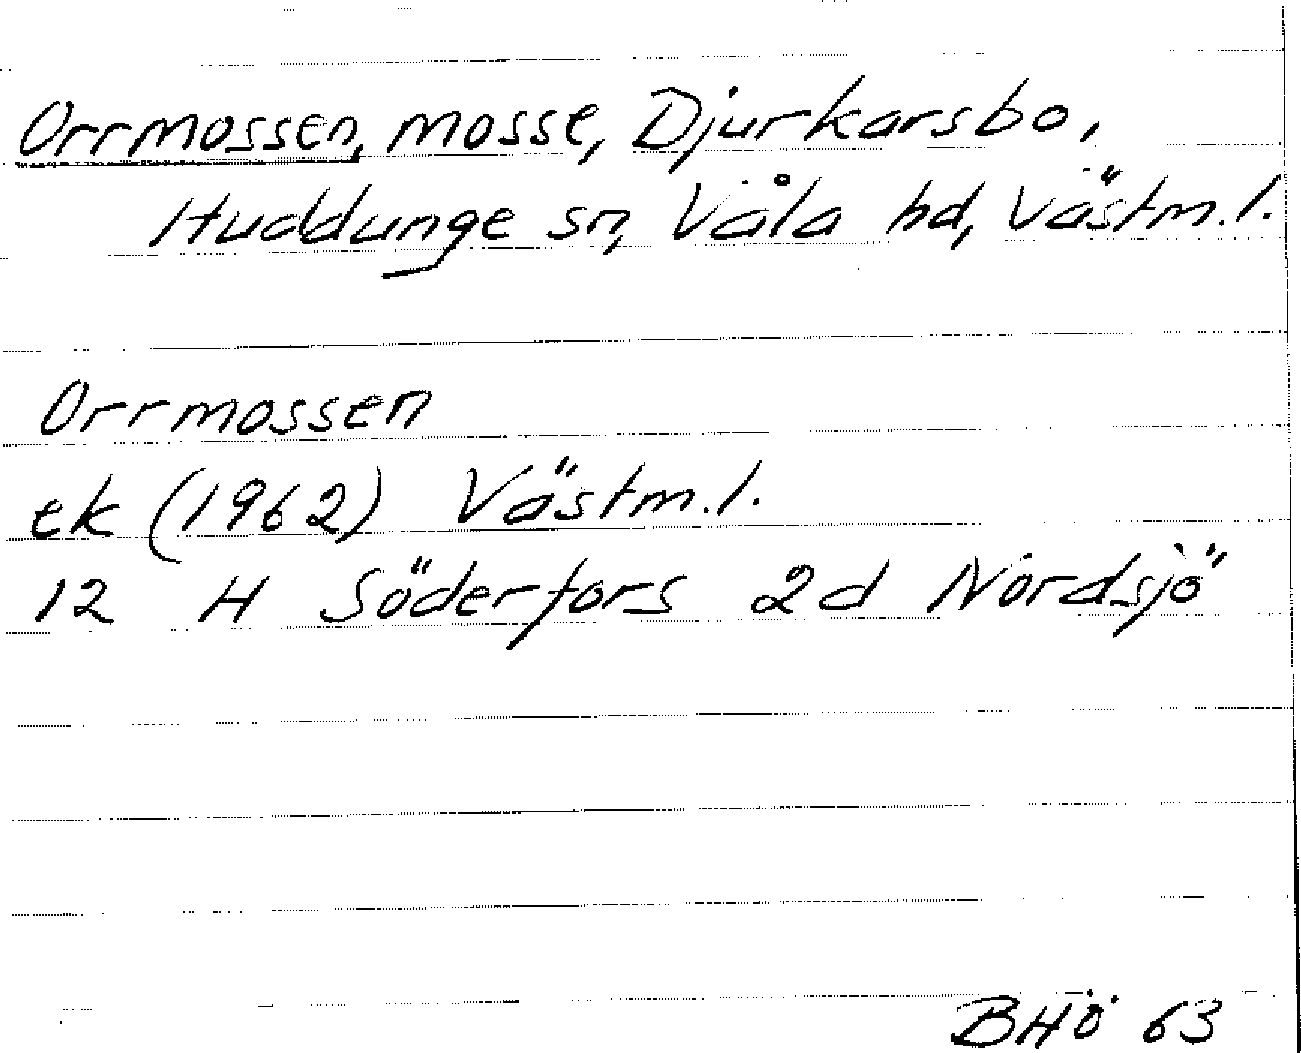 Orrmossen, mosse, Djurkarsbo,
Huddunge sn, Våla hd, Västm.l.
Orrmossen
ek (1962) Västm.l.
12 H Söderfors 2d Nordsjö
BHÖ 63